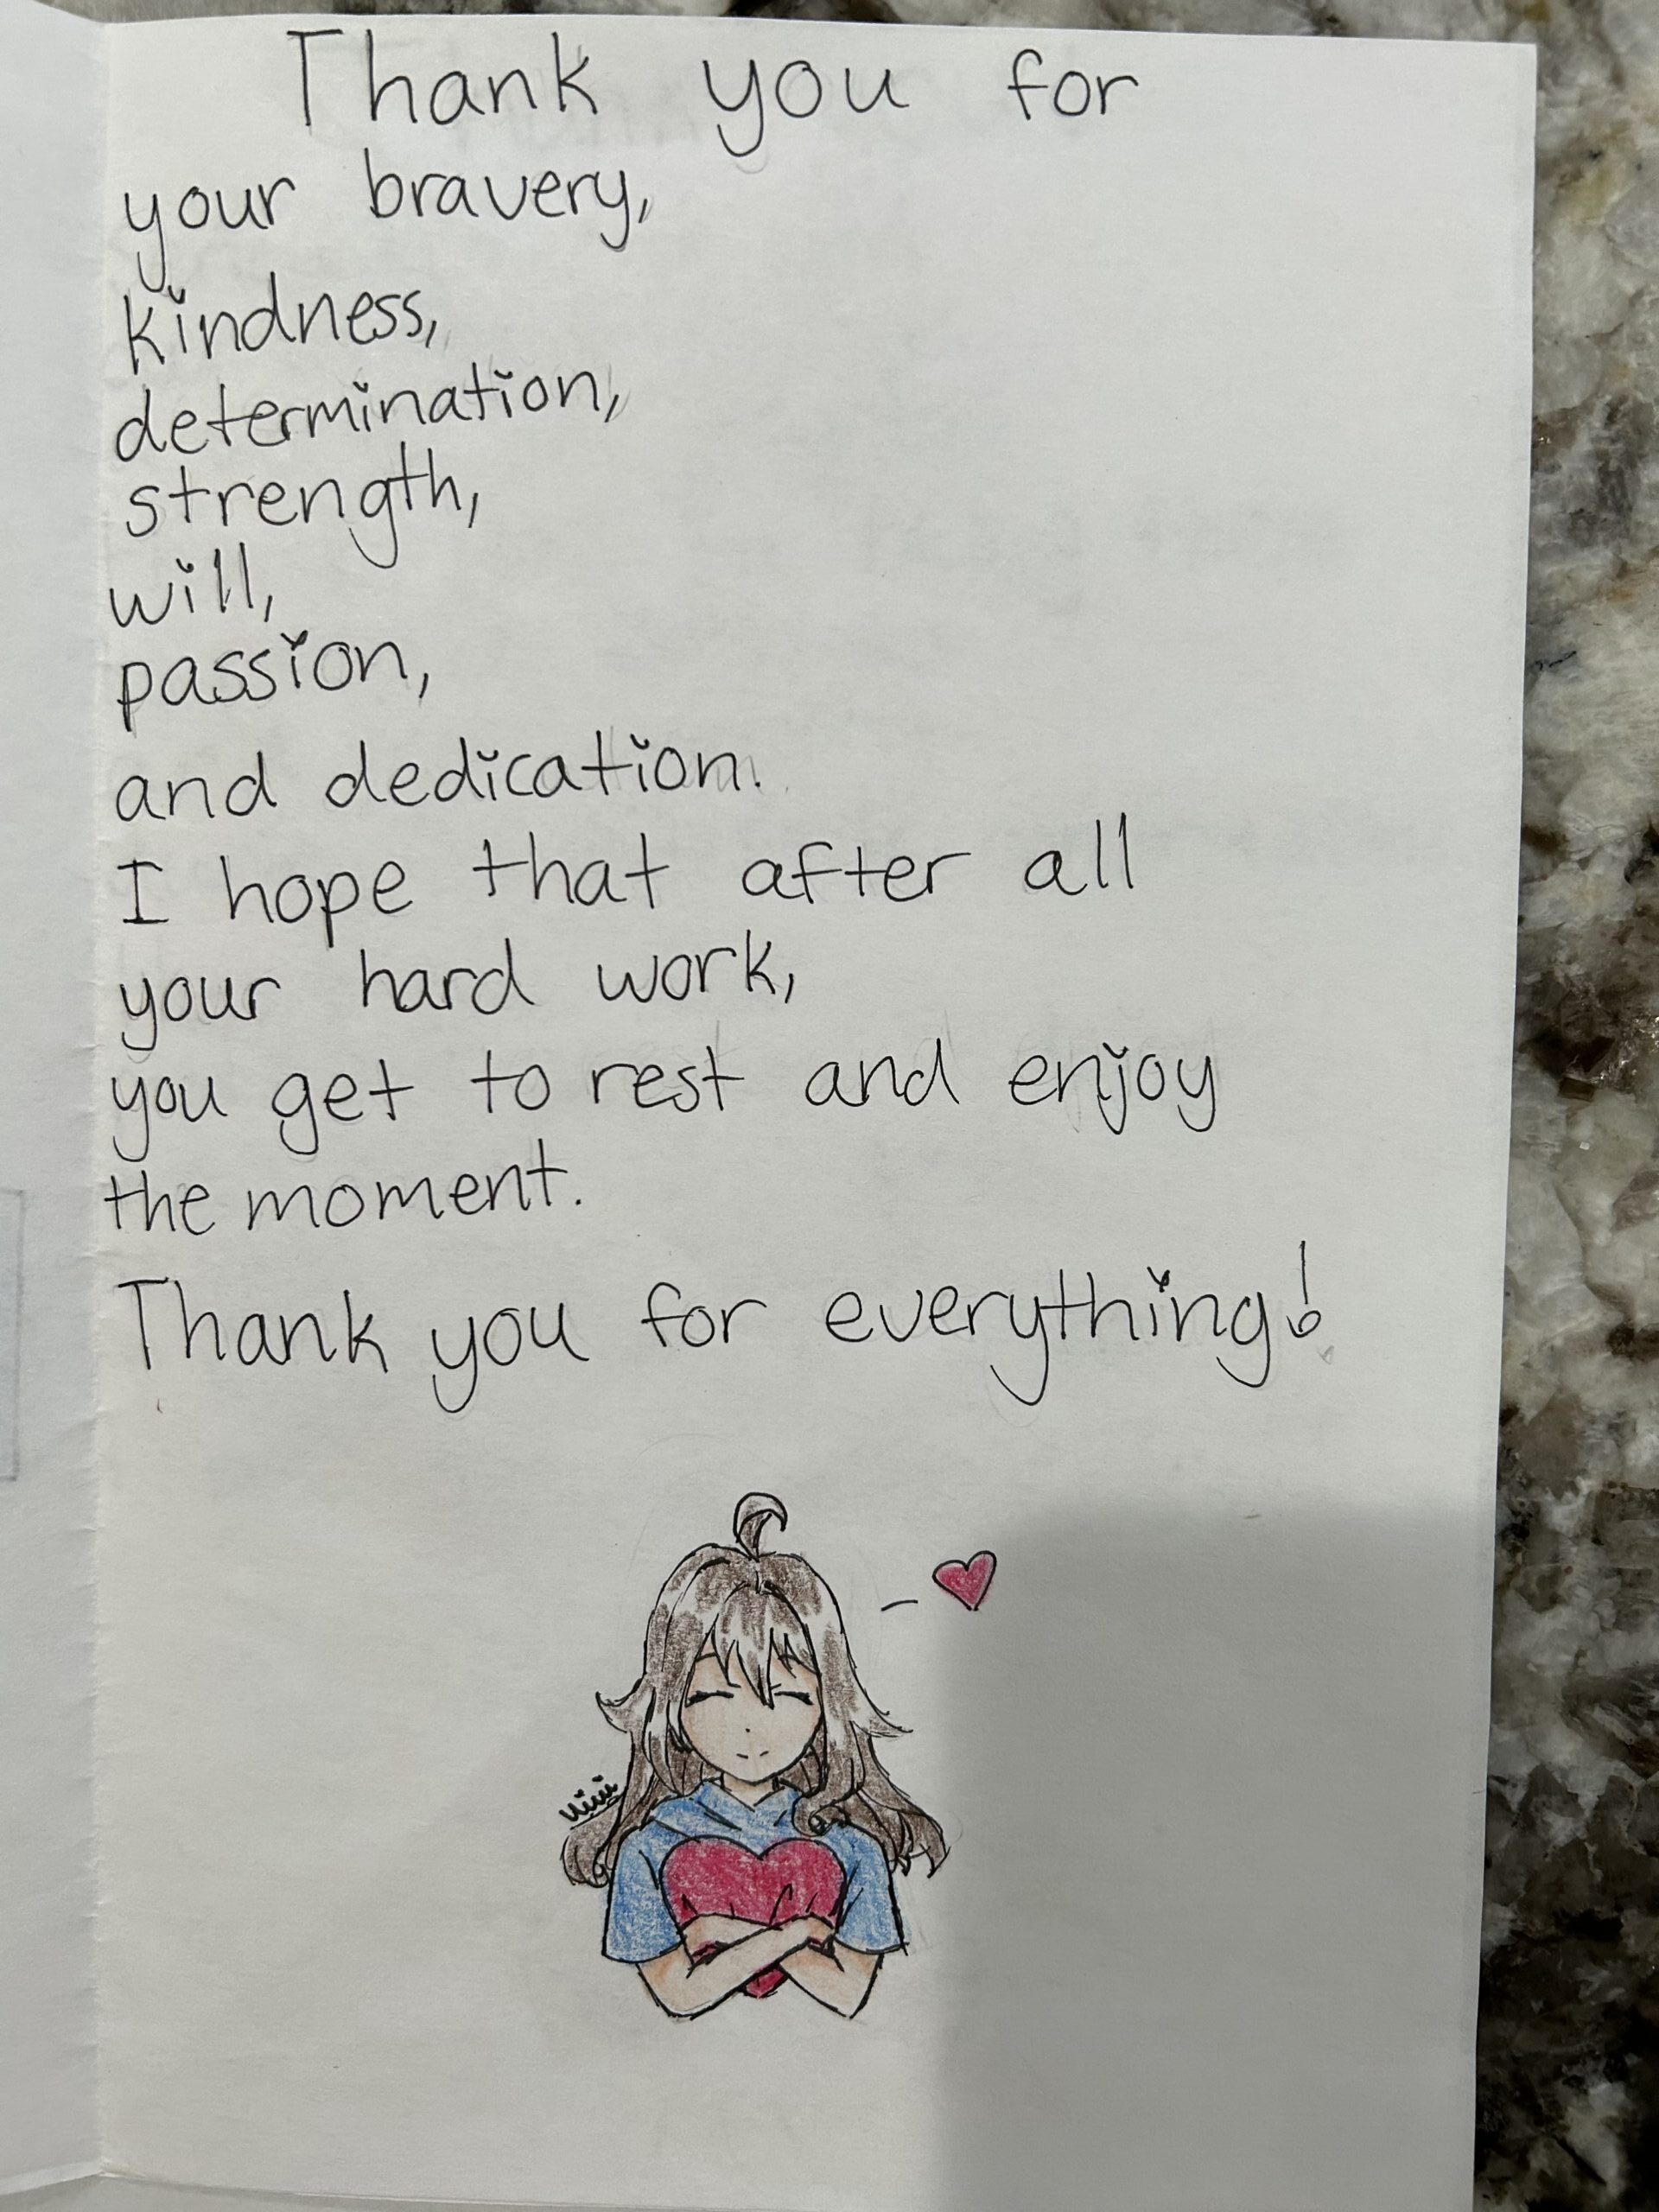 Thank you for
your bravery,
kindness,
determination,
strength,
will,
passion,
and dedication.
I hope that after all
your hard work,
you get to rest and enjoy
the moment.
Thank you for everything!